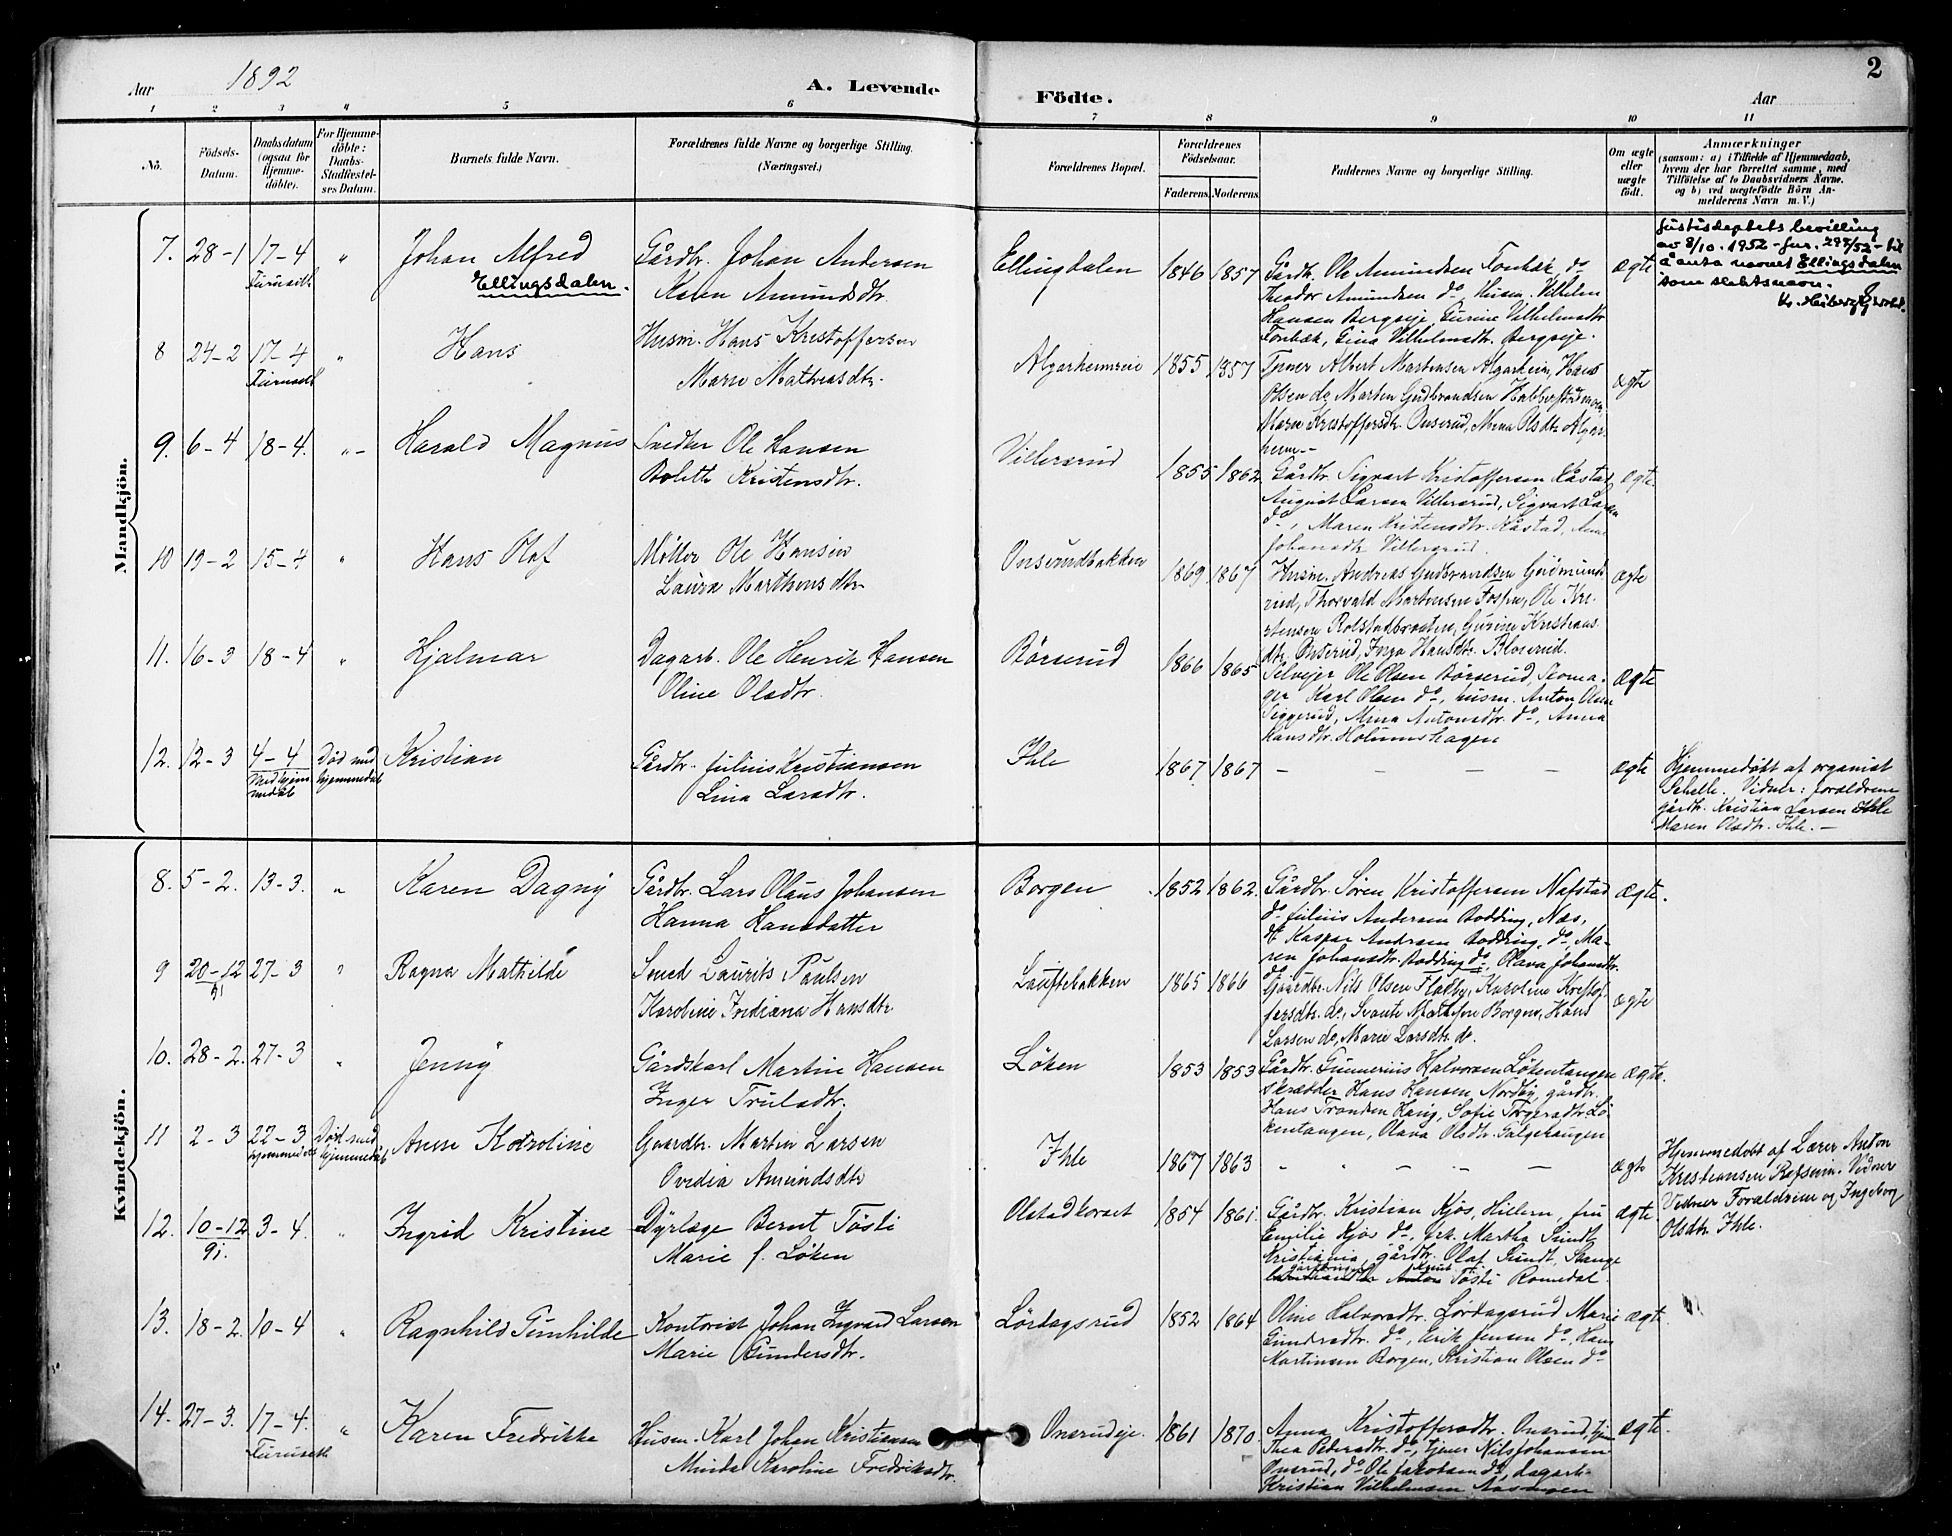 2
Aar 1892
A. Levende
Födte.
Aar
1 2 3 4 5 6 7 8 9 10 11
No.
Födsels-Datum.
Daabsdatum (ogsaa for Hjemme-döbte).
For Hjemme-döbte: Daabs-Stadfæstel-ses Datum.
Barnets fulde Navn.
Forældrenes fulde Navne og borgerlige Stilling. (Næringsvei.)
Forældrenes Bopæl.
Forældrenes Födselsaar.
Faderens. Moderens.
Faddernes Navne og borgerlige Stilling.
Om ægte eller uægte födt.
Anmærkninger
(saasom: a) i Tilfælde af Hjemmedaab,
hvem der har forrettet samme, med
Tilföielse af to Daabsvidners Navne,
og b) ved uægtefödte Börn An-
melderens Navn m. V.)
Mandkjön.
7. 28-1 17-4 Furuseth " Johan Alfred Ellingsdalen.
Gårdbr. Johan Andersen
Karen Amundsdtr.
Ellingdalen 1846 1857
Gårdb. Ole Amundsen Fonbæk, do
Theodor Amundsen do, Husm. Vilhelm
Hansen Bergseje, Gurine Vilhelmsdtr
Fonbæk, Gina Vilhelmsdtr. Bergseje.
ægte
Justisdeptets bevilling
av 8/10. 1952 - jnr. /52 - til
å anta navnet Ellingsdalen
som slektsnavn.
8 24-2 17-4 Furuseth " Hans
Husm. Hans Kristoffersen
Marie Matheasdtr.
Algarheimseie 1855 1857
Tjener Albert Martensen Algarheim, Hans
Olsen do, Marten Gudbrandsen Habberstadmoen,
Maren Kristoffersdtr. Onserud, Mina Olsdtr Algar-
heim.-
ægte
9. 6-4 18-4. "- Harald Magnus
Snedker Ole Hansen
Bolette Kristensdtr.
Villersrud 1855 1862
Gårdbr. Sigvart Kristoffersen Kåstad,
August Larsen Villersrud, Sigvart Larsen
do, Maren Kristensdtr. Kåstad, Anne
Johansdtr Villersrud.
ægte.
10 19-2 15-4 " Hans Olaf
Møller Ole Hansen
Laura Marthensdtr
Onserudbakken 1869 1867
Husm. Andreas Gudbrandsen
rud, Thorvald Martensen Fosen, Ole Kri-
stensen Rolstadbraaten, Gurine Kristians
dtr. Onserud, Inga Hansdtr. Bloserud.
ægte
11. 16-3 18-4 " Hjalmar
Dagarb. Ole Henrik Hansen
Oline Olsdtr.
Børserud 1866 1865
Selvejer Ole Olsen Børserud, Skoma-
ger Karl Olsen do, husm. Anton Olsen
Siggerud, Mina Antonsdtr. do, Anna
Hansdtr. Holumshagen
ægte
12. 12-3 4-4 ved hjemmedåb Død med hjemmedåb Kristian
Gårdbr. Julius Kristiansen
Lina Larsdtr.
Ihle 1867 1867 - - - -
ægte
Hjemmedøbt af organist
Schelle. Vidner: forældrene
gårdbr. Kristian Larsen Ihle
Maren Olsdtr. Ihle. -
Kvindekjön.
8. 5-2. 13-3. " Karen Dagny
Gårdbr. Lars Olaus Johansen
Hanna Hansdatter
Borgen 1852 1862.
Gårdbr. Søren Kristoffersen Nafstad
do Julius Andersen Bodding, Næs,
do Kaspar Andersen Bodding, do, Ma-
ren Johansdtr. Bodding do, Olava Johansdtr.
do
ægte.
9 20-12/91 27-3 " Ragna Mathilde
Smed Laurits Paulsen
Karoline Indiana Hansdtr.
Lauftebakken 1865 1866
Gaardbr. Nils Olsen Flatby, Karoline Kristof-
fersdtr. do, Svante Borgen, Hans
Larsen do, Marie Larsdtr. do.
ægte
10. 28-2. 27-3 " Jenny
Gårdskarl Martin Hansen
Inger Trulsdtr.
Løken 1853 1853
Gårdbr. Gunnerius Halvorsen Løkentangen
Skrædder Hans Hansen Nordby, gårdbr.
Hans Tronsen Haug, Sofie Torgersdtr. Lø-
kentangen, Olava Olsdtr. Galgehaugen
ægte.
11 2-3 22-3 hjemmedøbt Død med hjemmedåb Anne Karoline
Gaardbr. Martin Larsen
Ovedia Amundsdtr
Ihle 1867 1863 - - - - -
ægte
Hjemmedøbt af Lærer Anton
Kristiansen Refsum. Vidner
Vidner Forældrene og Ingeborg
Olsdtr Ihle.
12. 10-12/91. 3-4. " Ingrid Kristine
Dyrlæge Bernt Tøsti
Marie f. Løken
Olstadkorset 1854 1861.
Gårdbr. Kristian Kjos, Hillern, fru
Emilie Kjos do, frk. Martha Sundt
Kristiania, gårdbr. Olaf Sundt, Stange
Knut Tøsti Romedal.
ægte.
13. 18-2. 10-4 " Ragnhild Gunhilde
Kontorist Johan Ingvard Larsen
Marie Gundersdtr.
Lørdagsrud 1852 1864
Oline Halvorsdtr. Lørdagsrud, Marie
Gundersdtr. do, Erik Jensen do, Hans
Martinsen Borgen, Kristian Olsen do
ægte.
14. 27-3. 17-4. Furuseth " Karen Fredrikke
Husm. Karl Johan Kristiansen
Minda Karoline Fredriksdtr.
Onsrudeje. 1861 1870.
Anna Kristoffersdtr. Onsrud, tjen.
Thea Pedersdtr. do, tjener Nils Johansen
Onsrud, do Ole Jakobsen do, dagarb.
Kristian Vilhelmsen Aasengen
ægte.